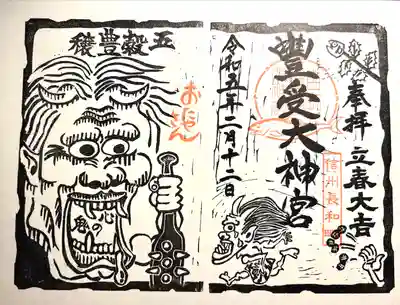 奉拝 立春大吉
豐受大神宮
令和五年二月十二日
信州長和町
五穀豊穣
心の鬼